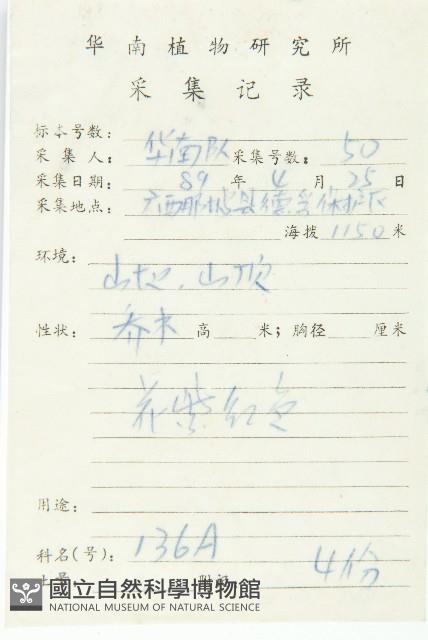 华南植物研究所
采集记录
标本号数:
采集人: 华南队 采集号数: 50
采集日期: 89 年 4 月 25 日
采集地点: 广西那坡县德孚保护区
海拨 1150 米
环境:
山地、山顶
性状: 乔木 高 米; 胸径 厘米
花紫红色
用途:
科名(号): 136A
4份
國立自然科學博物館
NATIONAL MUSEUM OF NATURAL SCIENCE